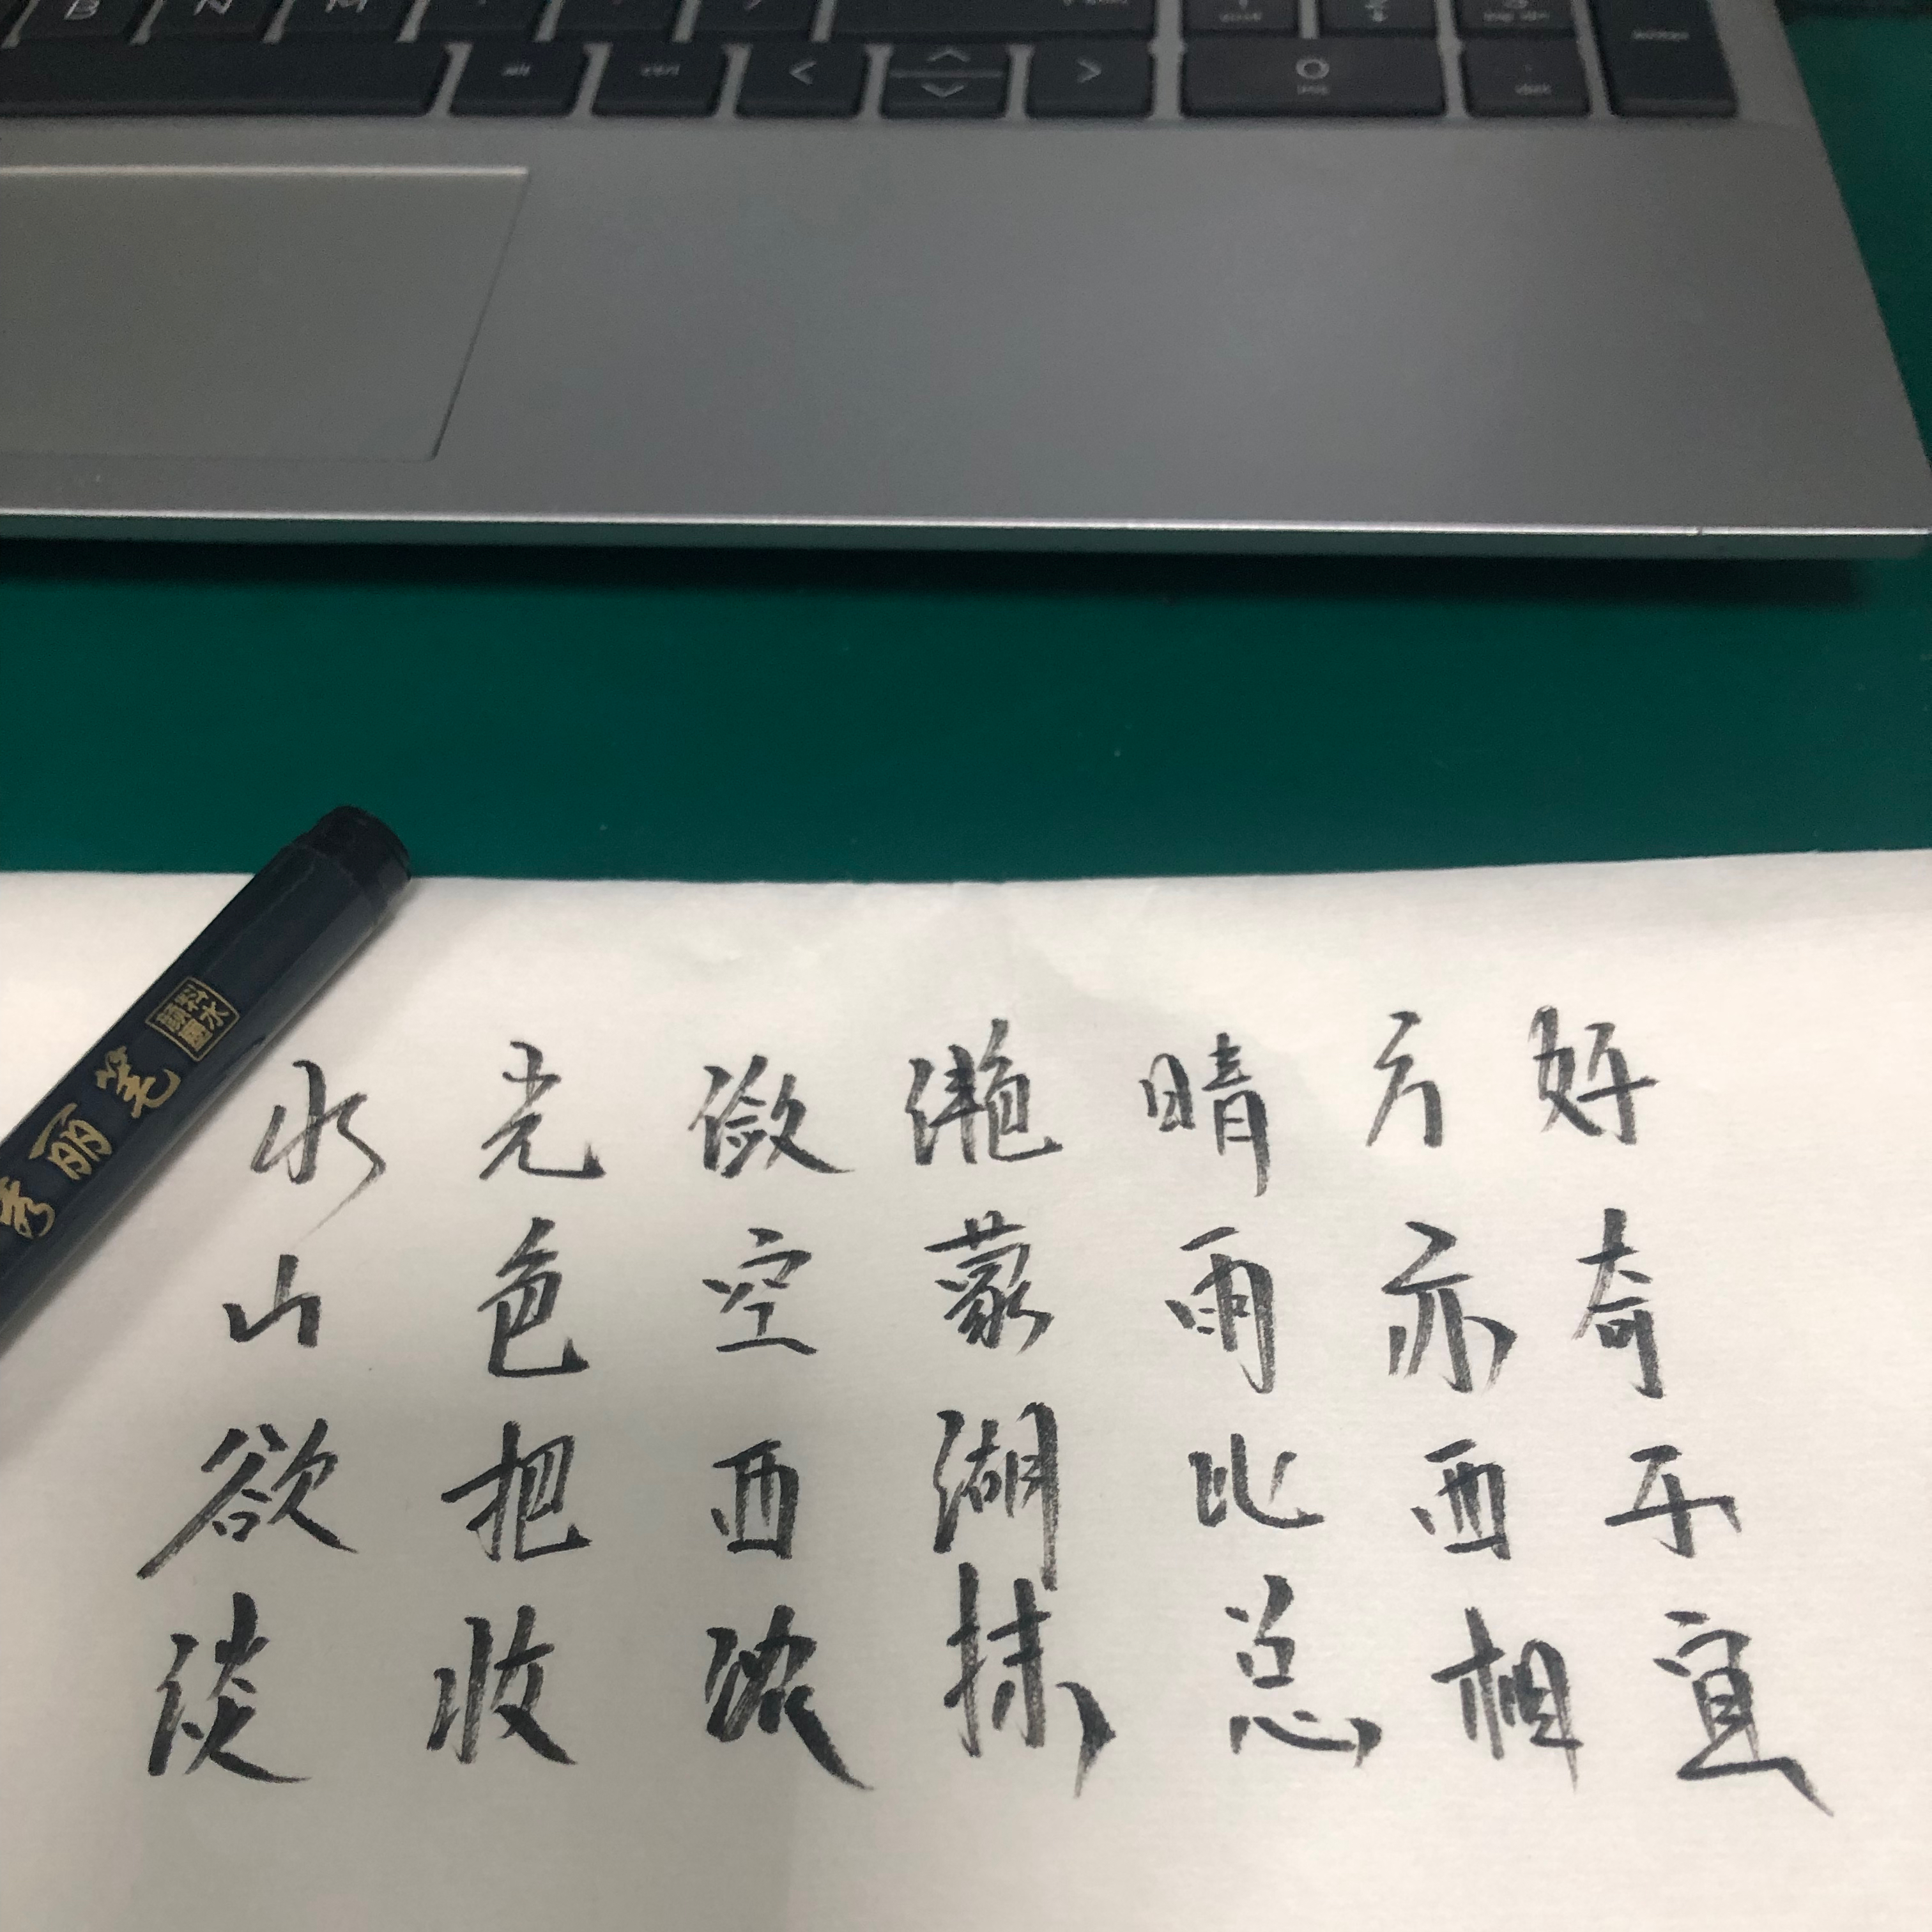 B N M
alt ctrl < > 0
ins del
秀丽笔
水光潋滟晴方好
山色空蒙雨亦奇
欲把西湖比西子
淡妆浓抹总相宜